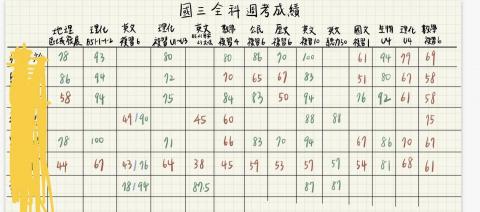 國三全科週考成績
地理 理化 英文 理化 英文 數學 公民 歷史 英文 英文 國文 生物 理化 數學
區域發展 B5 1-1~1-2 複習6 複習U1~U3 複習4 複習6 複習6 複習10 聽力50 複習1 U4 U4 複習6
78 93 80 80 86 70 100 61 94 79 69
86 94 72 70 65 67 83 51 80 67 58
58 94 75 84 83 50 94 76 92 61 58
49/90 45 60 88 88 75
78 100 71 66 83 70 94 67 86 70 67
44 67 43/76 64 38 45 59 53 57 57 54 81 68 61
78/94 87.5 87 87